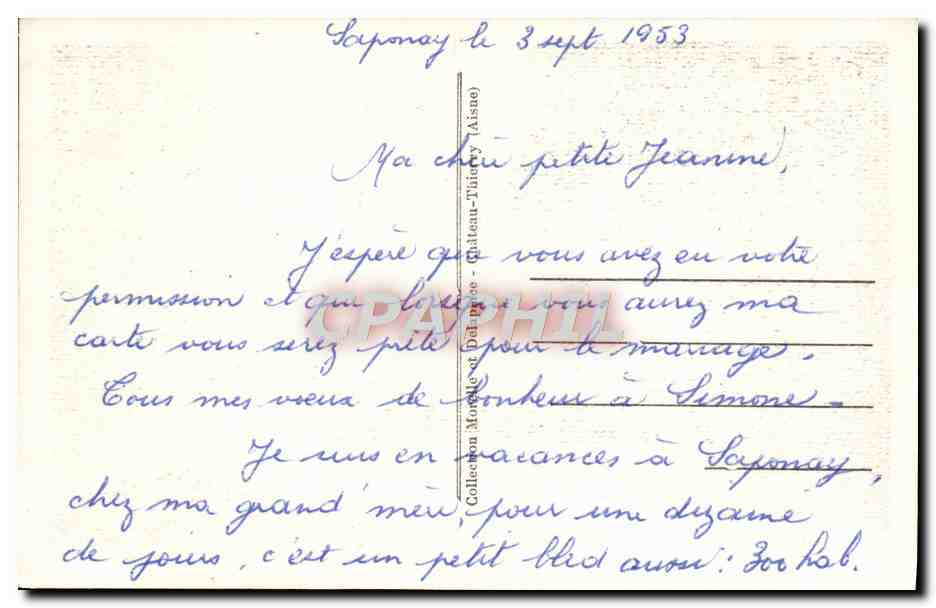 Saponay le 3 sept 1953
Ma chère petite Jeanine,
J'espère que vous avez eu votre
permission et que lorsque vous aurez ma
carte vous serez prête pour le mariage.
Tous mes voeux de bonheur à Simone.
Je suis en vacances à Saponay,
chez ma grand'mère, pour une dizaine
de jours, c'est un petit bled aussi : 300 hab.
Collection Morelle et Delaplace - Château-Thierry (Aisne)
CPAPHIL